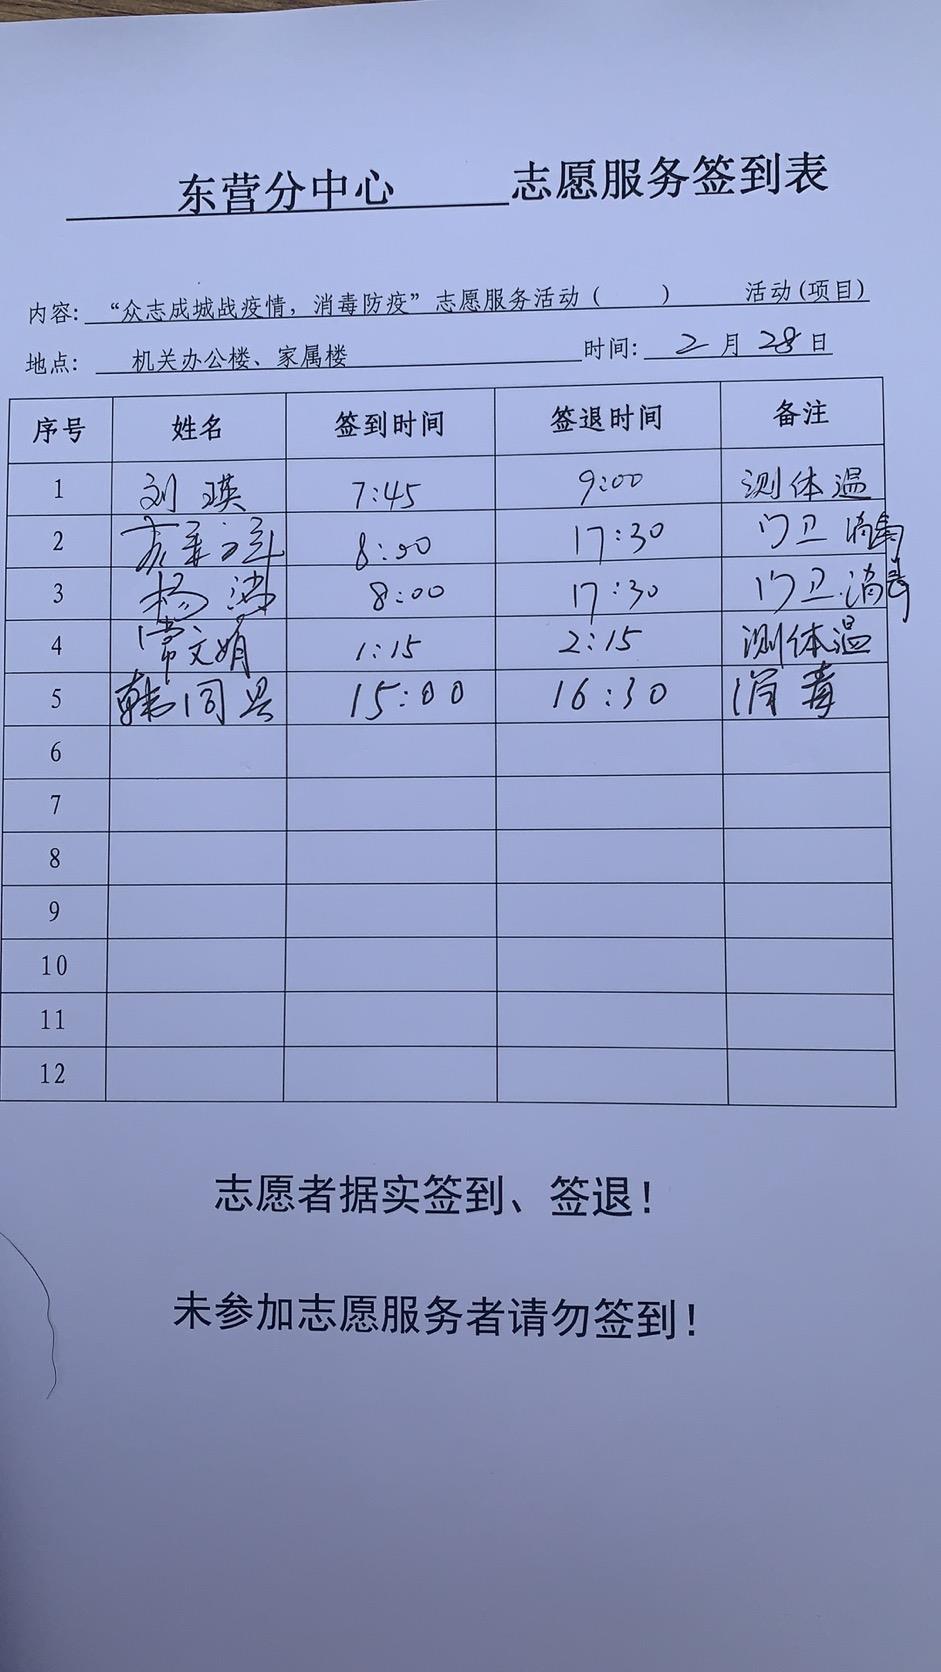 东营分中心 志愿服务签到表
内容: “众志成城战疫情，消毒防疫”志愿服务活动（ ） 活动(项目)
地点: 机关办公楼、家属楼 时间: 2 月 28 日
序号 姓名 签到时间 签退时间 备注
1 刘瑛 7:45 9:00 测体温
2 8:00 17:30 门卫 消毒
3 杨 8:00 17:30 门卫.消毒
4 常文娟 1:15 2:15 测体温
5 韩同 15:00 16:30 消毒
6
7
8
9
10
11
12
志愿者据实签到、签退！
未参加志愿服务者请勿签到！